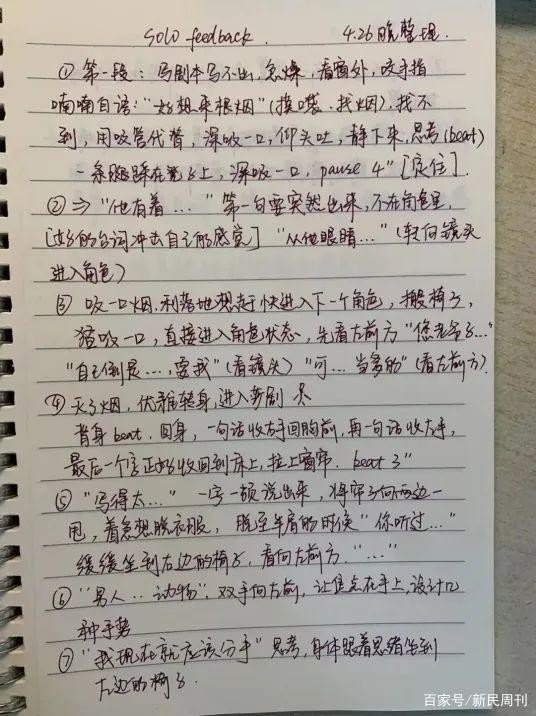 solo feedback. 4.26晚整理.
① 第一段：写剧本写不出，急燥，看窗外，咬手指
喃喃自语："好想来根烟"(摸嘴、找烟)，找不
到，用吸管代替，深吸一口，仰头吐，静下来，思考(beat)
一条腿踩在凳子上，深吸一口，pause 4" [定住].
② ⇒ "他有着 ..." 第一句要突然出来，不在角色里，
[过多的台词冲击自己的感觉] "从他眼睛..." (转向镜头
进入角色)
③ 吸一口烟，利落地想赶快进入下一个角色，搬椅子，
猛吸一口，直接进入角色状态，先看左前方 "您老爷子..."
"自己倒是...，要我"(看镜头) "可... 当爹的"(看左前方).
④ 灭了烟，优雅转身，进入莎剧
背身 beat. 回身，一句话收左手回胸前，再一句话收右手，
最后一个字正好收回到床上，拉上窗帘. beat 3"
⑤ "写得太..." 一字一顿说出来，将帘子向两边一
甩，着急想脱衣服，脱至半肩的时候 "你听过..."
缓缓坐到左边的椅子，看向左前方. "......"
⑥ "男人 ... 动物"：双手向左前，让焦点在手上，设计几
种手势
⑦ "我现在就应该分手" 思考，身体跟着思绪坐到
左边的椅子.
百家号/新民周刊